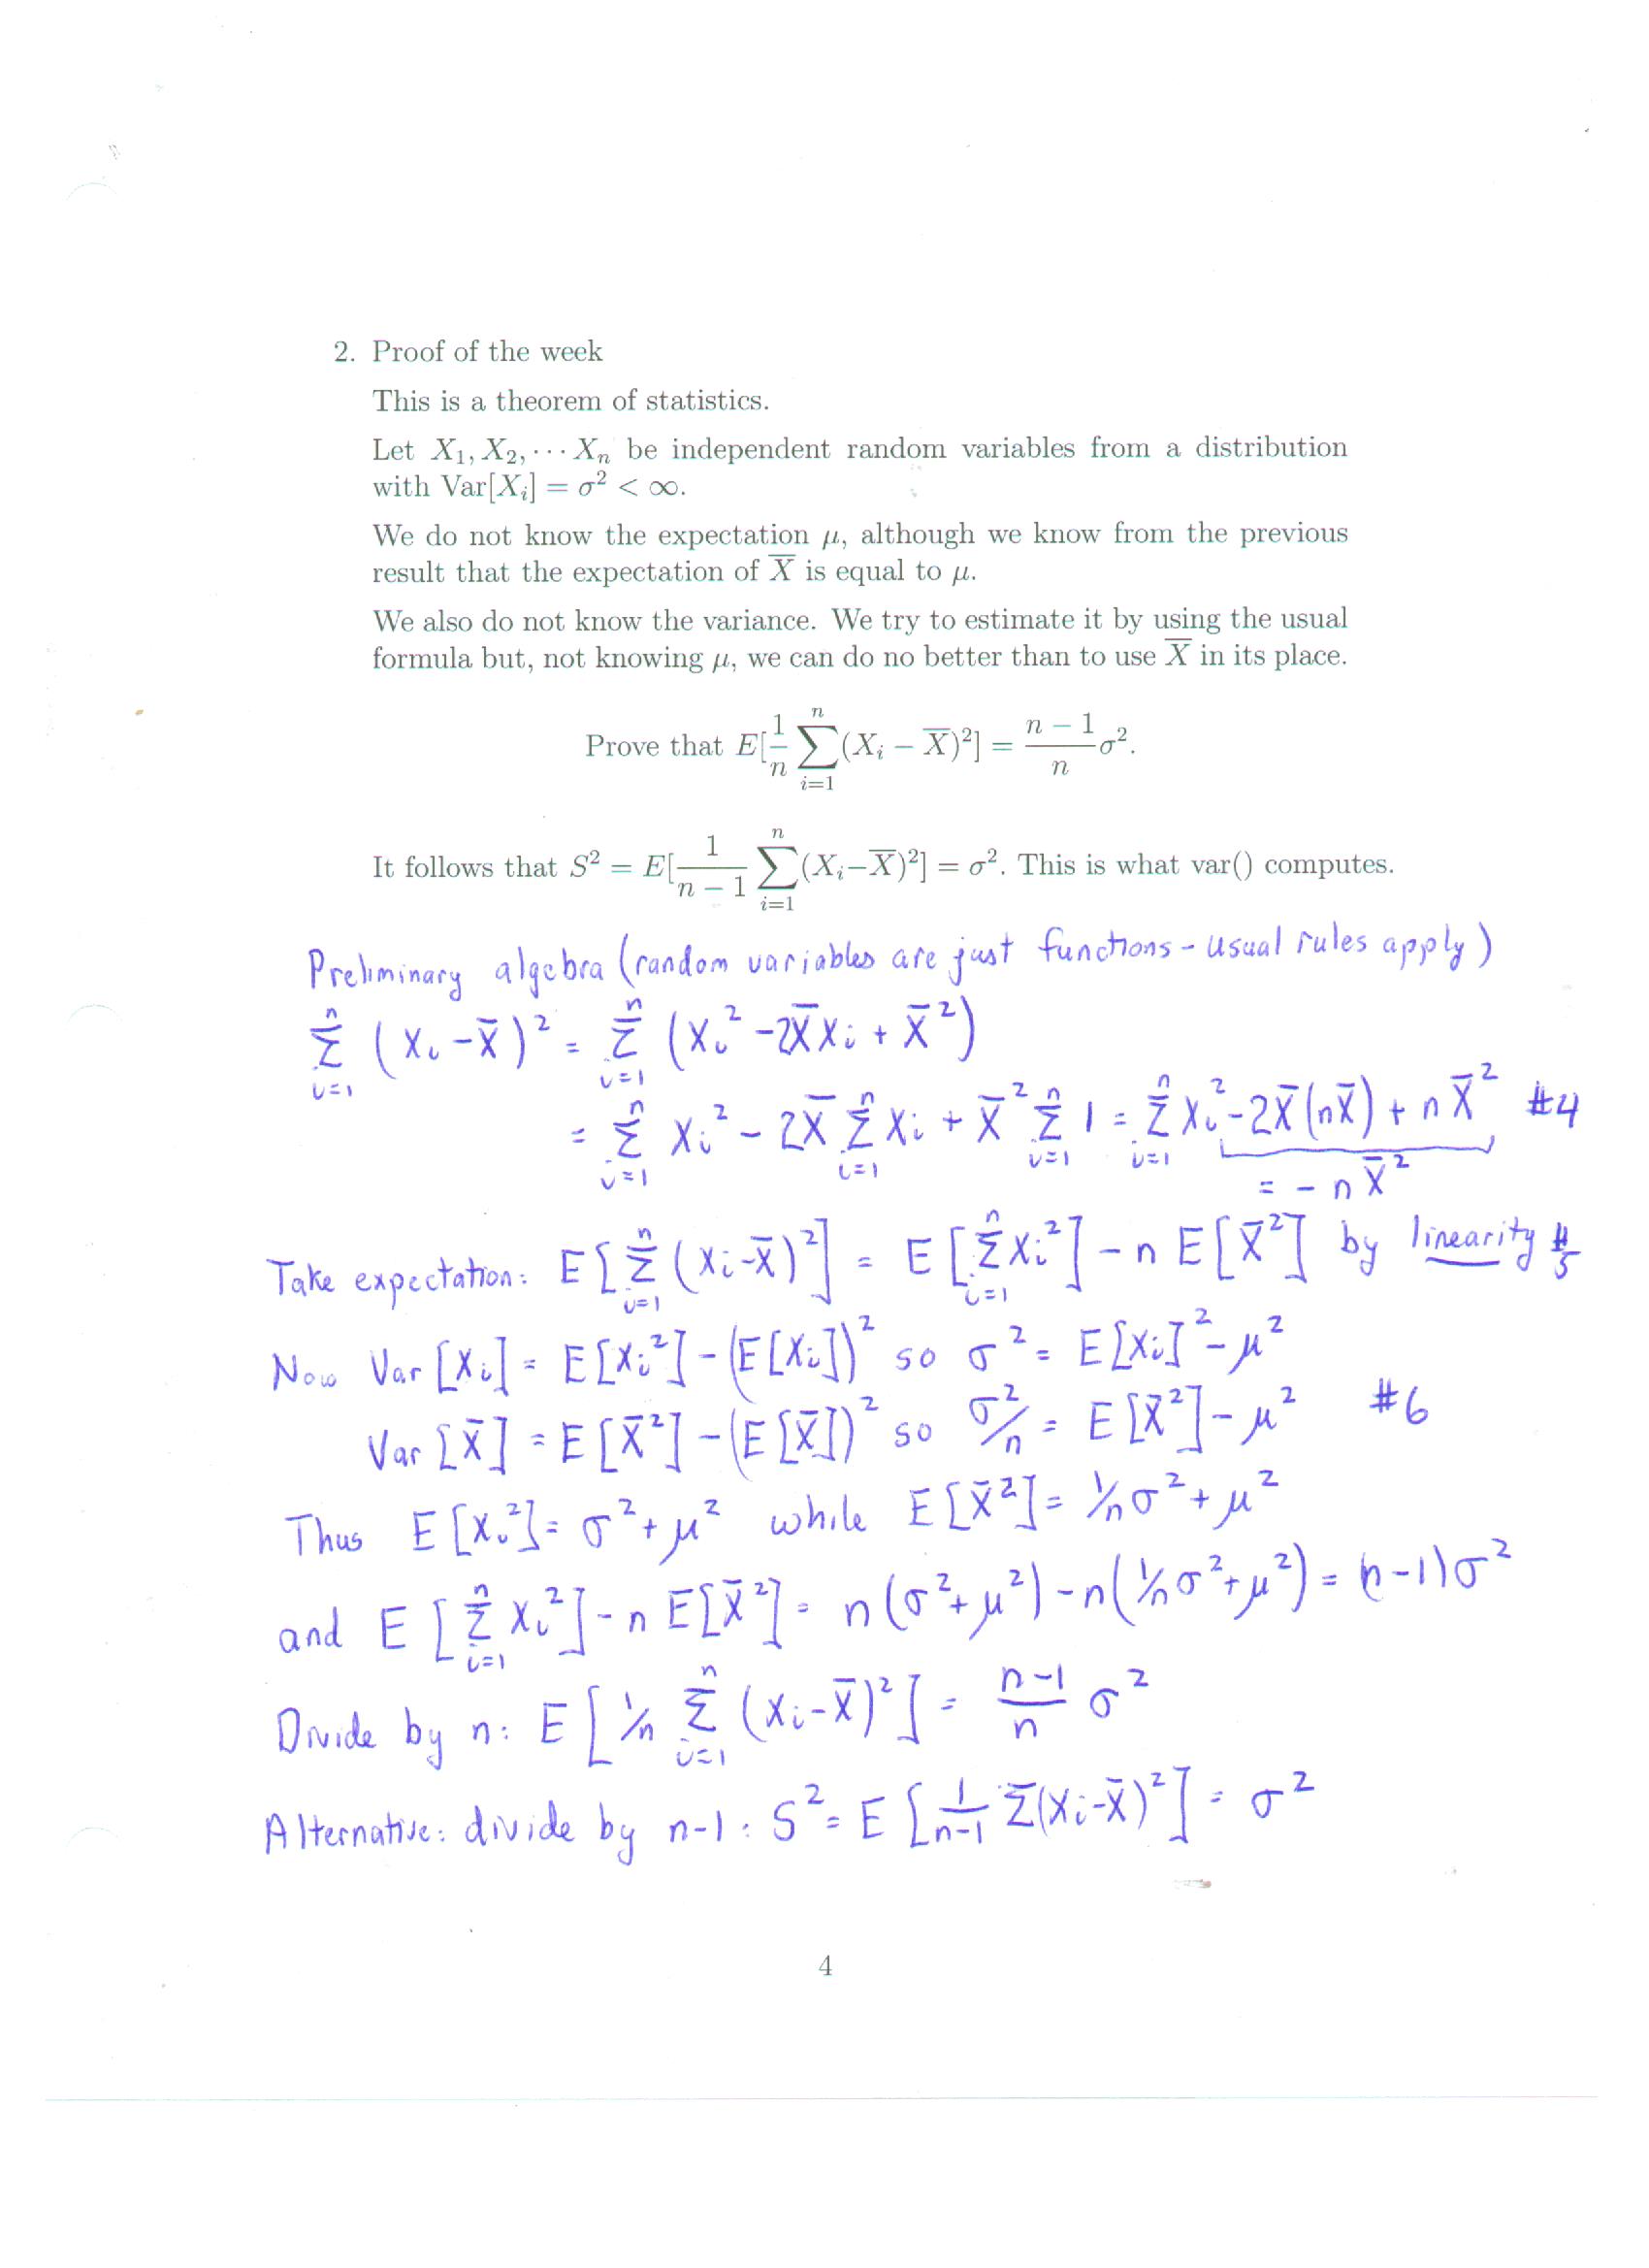 2. Proof of the week
This is a theorem of statistics.
Let X₁, X₂, ··· Xₙ be independent random variables from a distribution
with Var[Xᵢ] = σ² < ∞.
We do not know the expectation μ, although we know from the previous
result that the expectation of X̅ is equal to μ.
We also do not know the variance. We try to estimate it by using the usual
formula but, not knowing μ, we can do no better than to use X̅ in its place.
Prove that E[1/n ∑ᵢ₌₁ⁿ (Xᵢ − X̅)²] = (n − 1)/n σ².
It follows that S² = E[1/(n − 1) ∑ᵢ₌₁ⁿ (Xᵢ−X̅)²] = σ². This is what var() computes.
Preliminary algebra (random variables are just functions - usual rules apply)
∑ᵢ₌₁ⁿ (Xᵢ - X̅)² = ∑ᵢ₌₁ⁿ (Xᵢ² - 2X̅Xᵢ + X̅²)
= ∑ᵢ₌₁ⁿ Xᵢ² - 2X̅ ∑ᵢ₌₁ⁿ Xᵢ + X̅² ∑ᵢ₌₁ⁿ 1 = ∑ᵢ₌₁ⁿ Xᵢ² - 2X̅(nX̅) + nX̅² #4
= - nX̅²
Take expectation: E[∑ᵢ₌₁ⁿ (Xᵢ-X̅)²] = E[∑ᵢ₌₁ⁿ Xᵢ²] - n E[X̅²] by linearity #5
Now Var[Xᵢ] = E[Xᵢ²] - (E[Xᵢ])² so σ² = E[Xᵢ]² - μ²
Var[X̅] = E[X̅²] - (E[X̅])² so σ²/n = E[X̅²] - μ² #6
Thus E[Xᵢ²] = σ² + μ² while E[X̅²] = 1/n σ² + μ²
and E[∑ᵢ₌₁ⁿ Xᵢ²] - n E[X̅²] = n(σ² + μ²) - n(1/n σ² + μ²) = (n-1)σ²
Divide by n: E[1/n ∑ᵢ₌₁ⁿ (Xᵢ-X̅)²] = (n-1)/n σ²
Alternative: divide by n-1: S² = E[1/(n-1) ∑(Xᵢ-X̅)²] = σ²
4